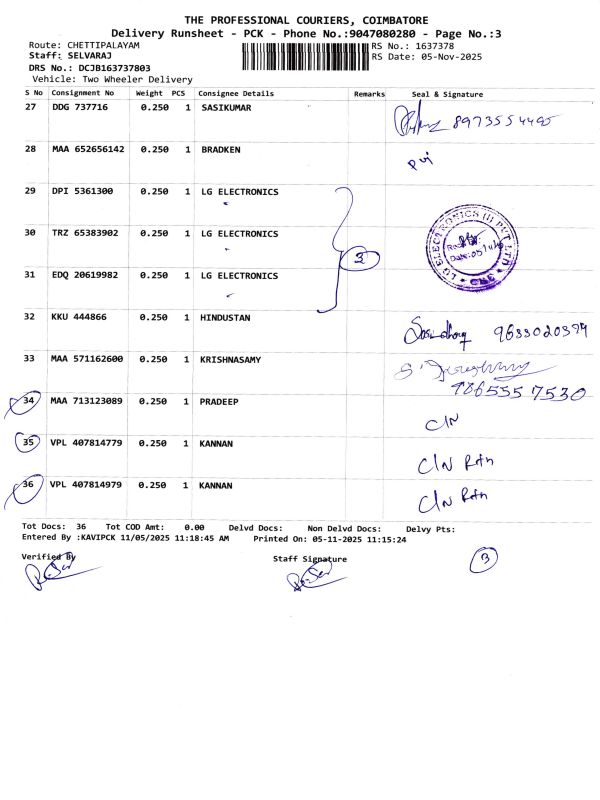 THE PROFESSIONAL COURIERS, COIMBATORE
Delivery Runsheet - PCK - Phone No.:9047080280 - Page No.:3
Route: CHETTIPALAYAM RS No.: 1637378
Staff: SELVARAJ RS Date: 05-Nov-2025
DRS No.: DCJB163737803
Vehicle: Two Wheeler Delivery
S No Consignment No Weight PCS Consignee Details Remarks Seal & Signature
27 DDG 737716 0.250 1 SASIKUMAR
8973554495
28 MAA 652656142 0.250 1 BRADKEN
29 DPI 5361300 0.250 1 LG ELECTRONICS
30 TRZ 65383902 0.250 1 LG ELECTRONICS
LG ELECTRONICS (I) PVT LTD
3
31 EDQ 20619982 0.250 1 LG ELECTRONICS
32 KKU 444866 0.250 1 HINDUSTAN
9633020394
33 MAA 571162600 0.250 1 KRISHNASAMY
9865557530
34 MAA 713123089 0.250 1 PRADEEP
C/N
35 VPL 407814779 0.250 1 KANNAN
C/N Rtn
36 VPL 407814979 0.250 1 KANNAN
C/N Rtn
Tot Docs: 36 Tot COD Amt: 0.00 Delvd Docs: Non Delvd Docs: Delvy Pts:
Entered By :KAVIPCK 11/05/2025 11:18:45 AM Printed On: 05-11-2025 11:15:24
Verified By Staff Signature
3